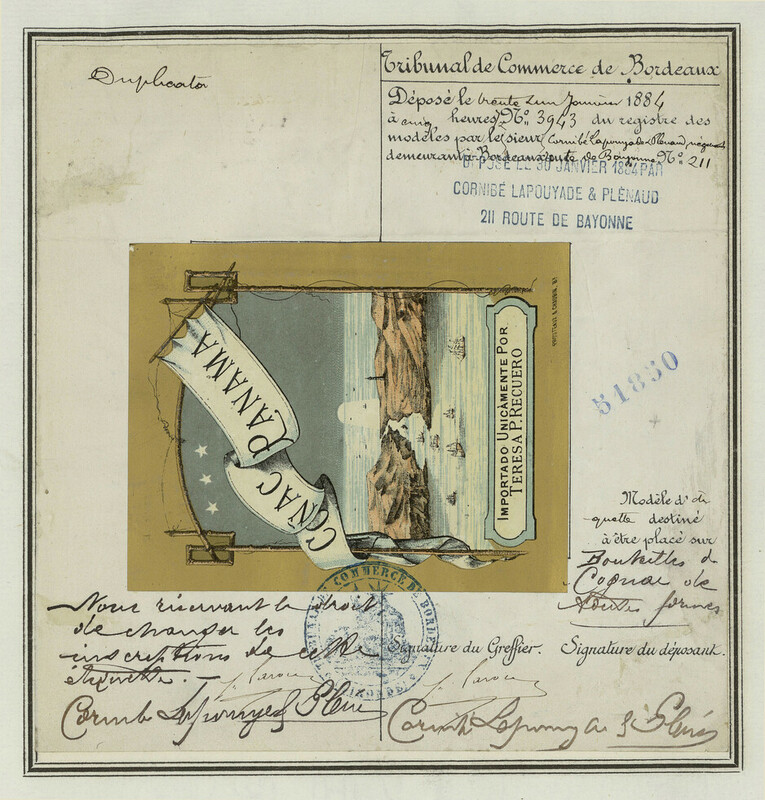 Duplicata
Tribunal de Commerce de Bordeaux
Déposé le trente un Janvier 1884
à cinq heures No. 3943 du registre des
modèles par le sieur Cornibé Lapouyade & Plénaud
demeurant à Bordeaux route de Bayonne No. 211
DÉPOSÉ LE 30 JANVIER 1884 PAR
CORNIBÉ LAPOUYADE & PLÉNAUD
211 ROUTE DE BAYONNE
COÑAC PANAMA
IMPORTADO UNICAMENTE POR.
TERESA P. RECUERO
51850
Modèle d'éti
quette destiné
à être placé sur
Bouteilles de
Cognac de
toutes formes
Nous réservant le droit
de changer les
inscriptions de cette
étiquette. —
TRIBUNAL DE COMMERCE DE BORDEAUX
GIRONDE
Signature du Greffier. Signature du déposant.